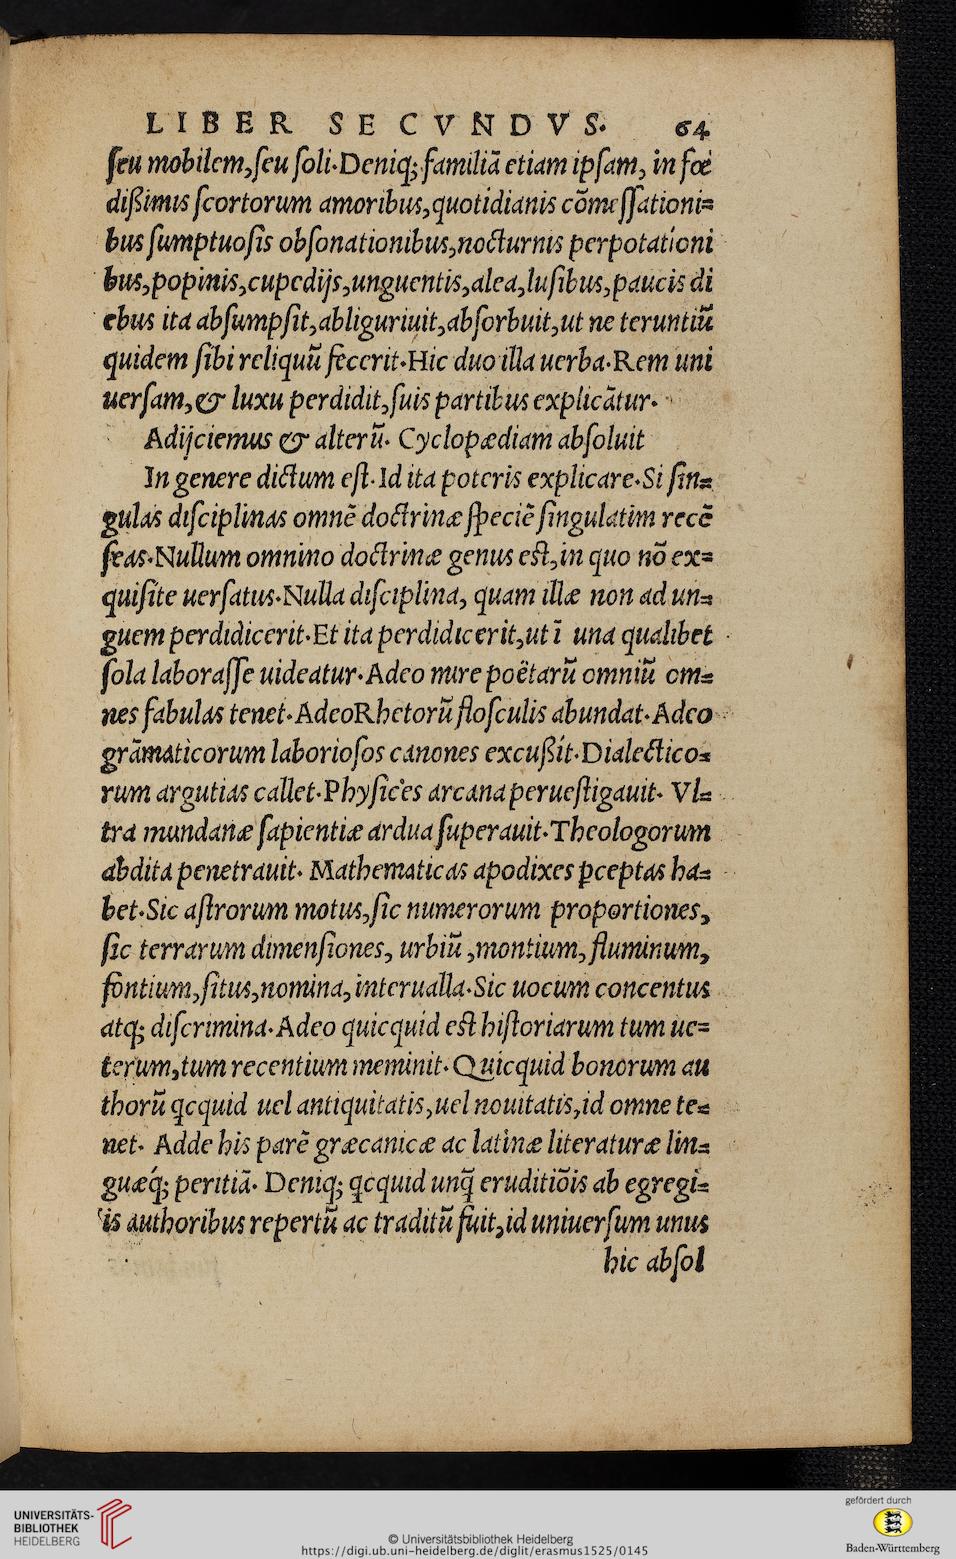 LIBER SECVNDVS. 64
ſeu mobilem,ſeu ſoli.Deniq; familiā etiam ipſam, in fœ
dißimis ſcortorum amoribus,quotidianis cōmeſſationi=
bus ſumptuoſis obſonationibus,nocturnis perpotationi
bus,popinis,cupedijs,unguentis,alea,luſibus,paucis di
ebus ita abſumpſit,abliguriuit,abſorbuit,ut ne teruntiū
quidem ſibi reliquū fecerit.Hic duo illa uerba.Rem uni
uerſam,& luxu perdidit,ſuis partibus explicātur.
Adijciemus & alterū. Cyclopædiam abſoluit
In genere dictum eſt.Id ita poteris explicare.Si ſin=
gulas diſciplinas omnē doctrinæ ſpeciē ſingulatim recē
ſeas.Nullum omnino doctrinæ genus eſt,in quo nō ex=
quiſite uerſatus.Nulla diſciplina, quam illæ non ad un=
guem perdidicerit.Et ita perdidicerit,ut ī una qualibet
ſola laboraſſe uideatur.Adeo mire poëtarū omniū om=
nes fabulas tenet.AdeoRhetorū floſculis abundat.Adeo
grāmaticorum laborioſos canones excußit.Dialectico=
rum argutias callet.Phyſices arcana perueſtigauit. Vl=
tra mundanæ ſapientiæ ardua ſuperauit.Theologorum
abdita penetrauit. Mathematicas apodixes ꝑceptas ha=
bet.Sic aſtrorum motus,ſic numerorum proportiones,
ſic terrarum dimenſiones, urbiū ,montium, fluminum,
fontium,ſitus,nomina, interualla.Sic uocum concentus
atq; diſcrimina.Adeo quicquid eſt hiſtoriarum tum ue=
terum,tum recentium meminit.Quicquid bonorum au
thorū qcquid uel antiquitatis,uel nouitatis,id omne te=
net. Adde his parē græcanicæ ac latinæ literaturæ lin=
guæq́; peritiā. Deniq; qcquid unq̄ eruditiōis ab egregi=
is authoribus repertū ac traditū fuit,id uniuerſum unus
hic abſol
UNIVERSITÄTS-
BIBLIOTHEK
HEIDELBERG
© Universitätsbibliothek Heidelberg
https://digi.ub.uni-heidelberg.de/diglit/erasmus1525/0145
gefördert durch
Baden-Württemberg